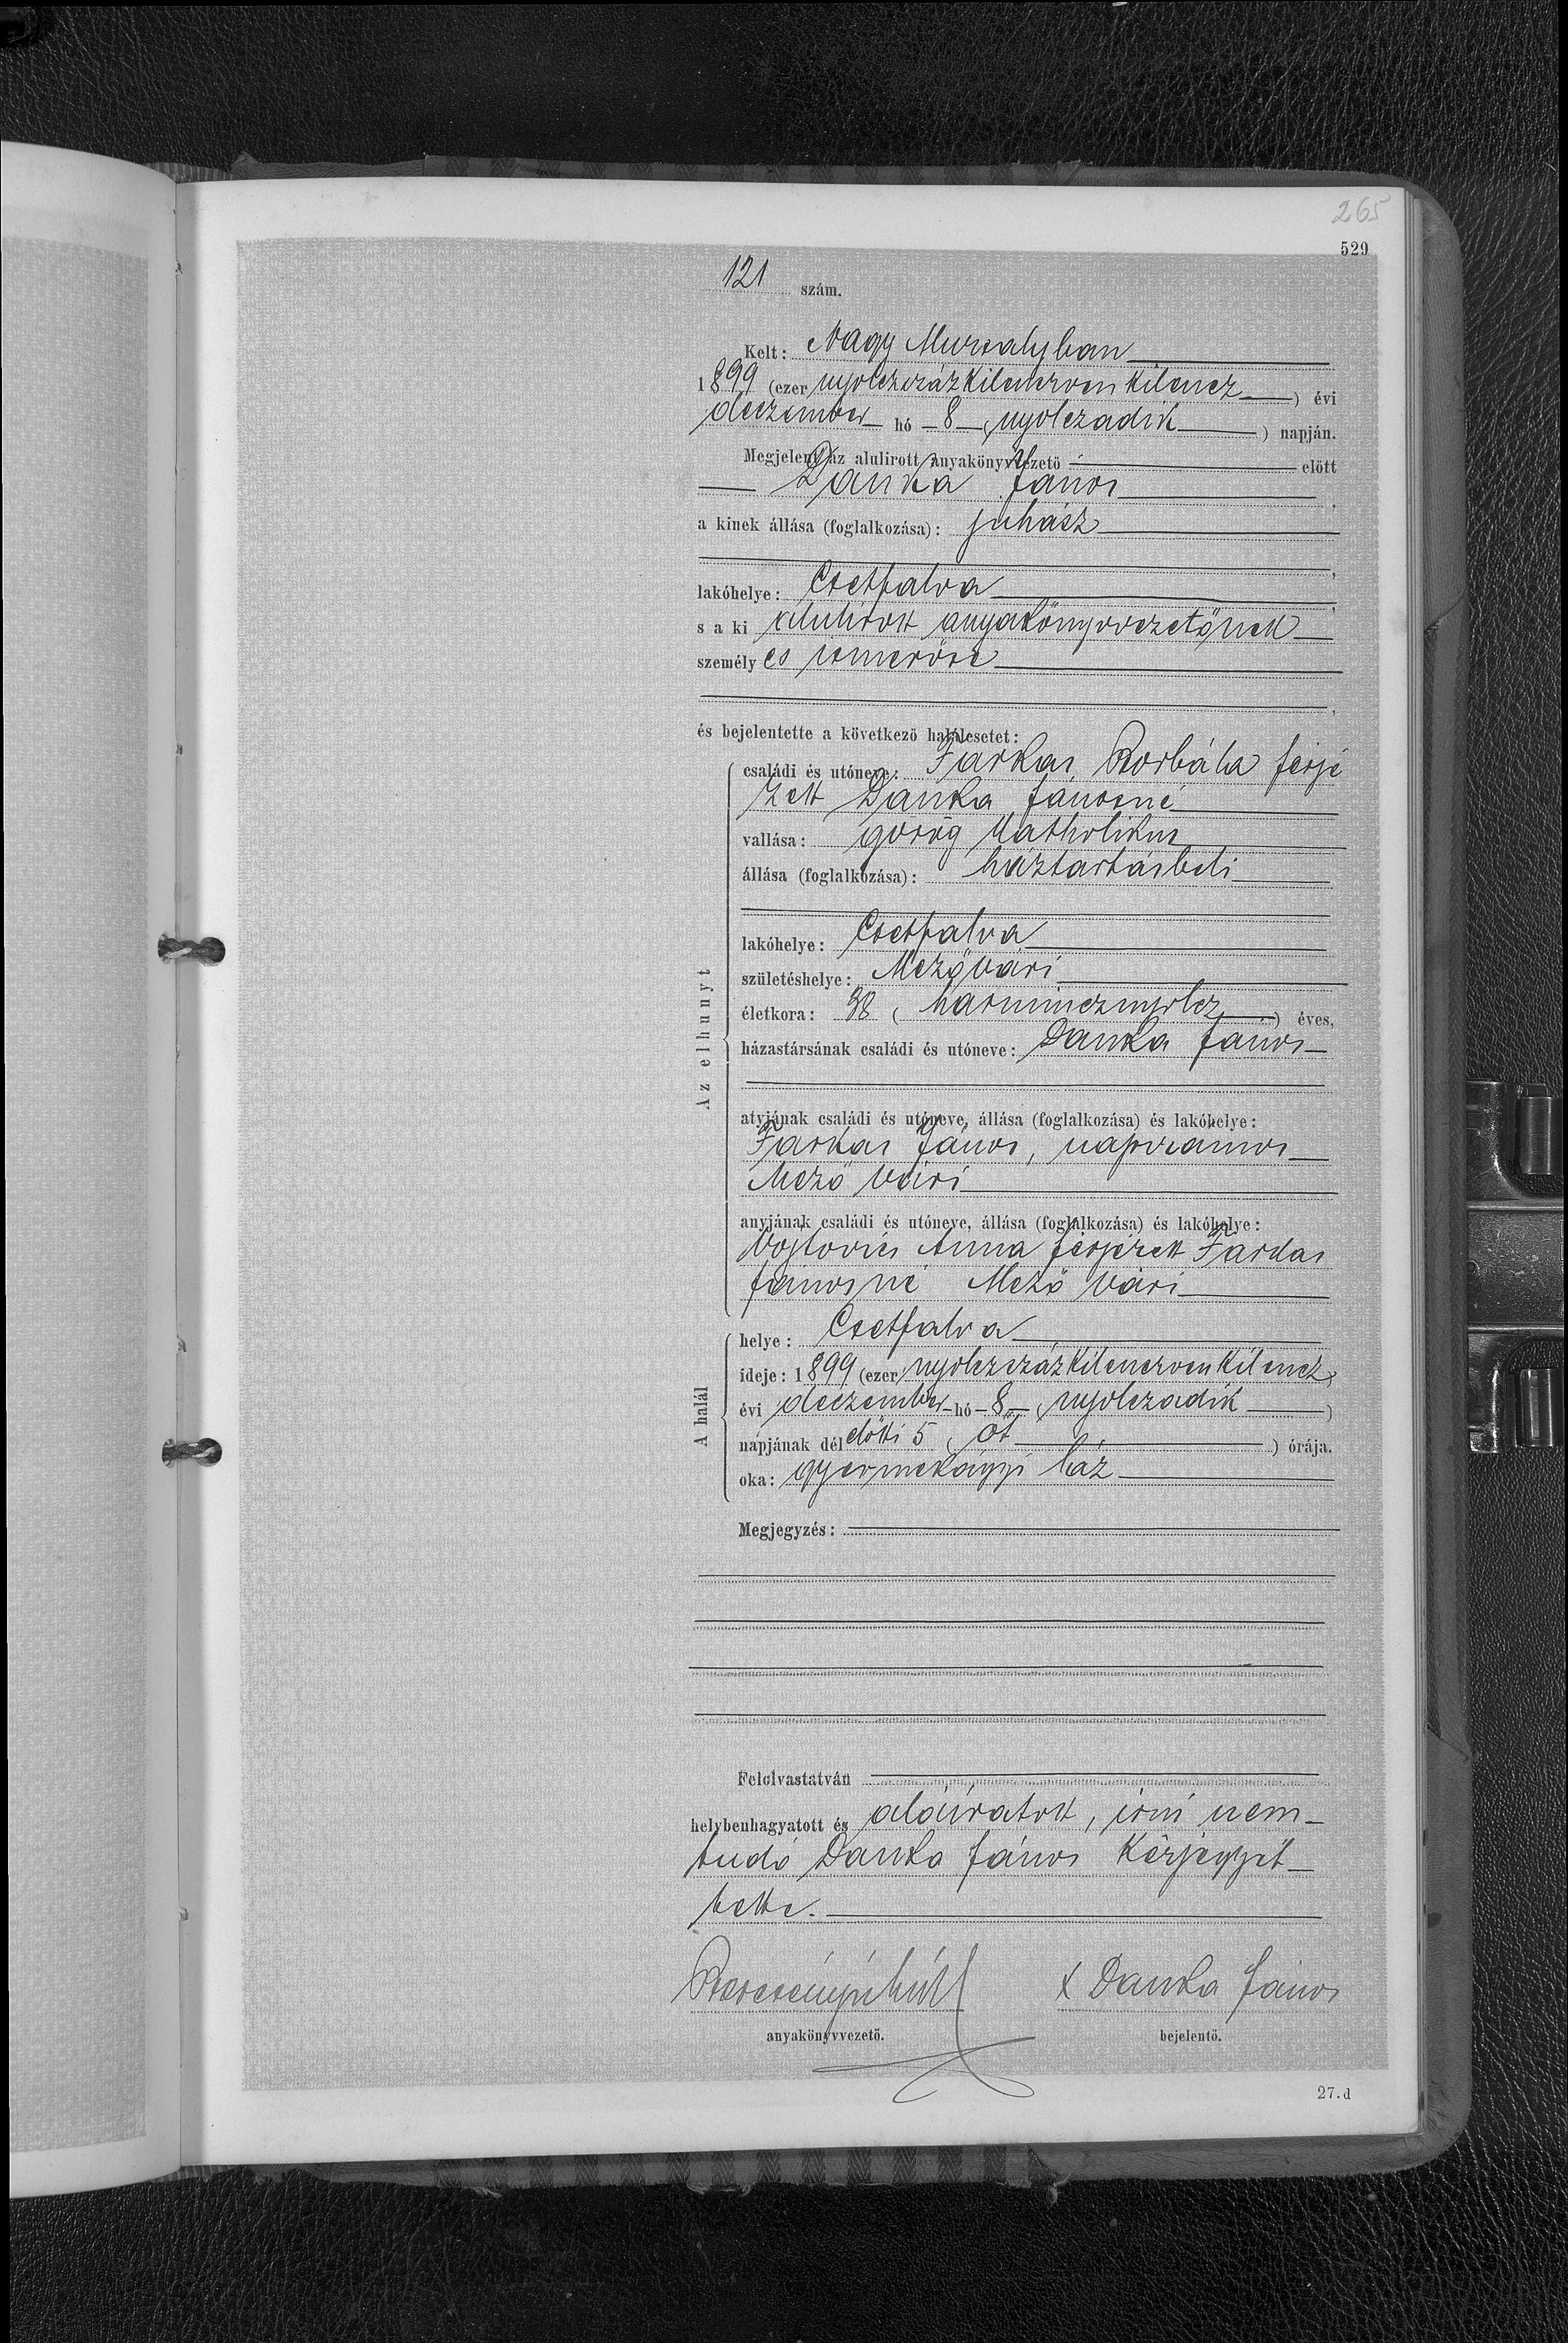 265
529
121 szám.
Kelt: Nagy Muzsalyban
1899 (ezer nyolczszázkilenczvenkilencz) évi
deczember hó 8 (nyolczadik) napján.
Megjelent az alulirott anyakönyvvezető előtt
Danka János,
a kinek állása (foglalkozása): juhász
,
lakóhelye: Csetfalva,
s a ki alulirott anyakönyvvezetőnek
személyes ismerőse
,
és bejelentette a következő halálesetet:
Az elhunyt
családi és utóneve: Farkas Borbála férje
zett Danka Jánosné
vallása: görög katholikus
állása (foglalkozása): háztartásbeli
lakóhelye: Csetfalva
születéshelye: Mezővári
életkora: 38 (harmincznyolcz) éves,
házastársának családi és utóneve: Danka János
atyjának családi és utóneve, állása (foglalkozása) és lakóhelye:
Farkas János, napszámos
Mező Vári
anyjának családi és utóneve, állása (foglalkozása) és lakóhelye:
Vojtovics Anna férjezett Farkas
Jánosné Mező Vári
A halál
helye: Csetfalva
ideje: 1899 (ezer nyolczszázkilenczvenkilencz)
évi deczember hó 8 (nyolczadik)
napjának délelőtti 5 (öt) órája.
oka: gyermekágyi láz
Megjegyzés:
Felolvastatván
helybenhagyatott és aláíratott, írni nem
tudó Danka János kézjegyét
tette.
x Danka János
anyakönyvvezető. bejelentő.
27.d